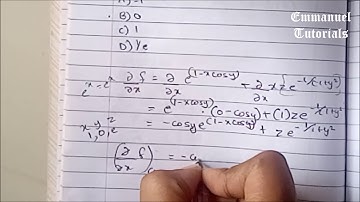 B) 0
C) 1
D) 1/e
Emmanuel
Tutorials
∂f/∂x = ∂/∂x e^(1-xcosy) + ∂/∂x xze^-1/(1+y²)
= e^(1-xcosy) · (0-cosy) + (1)ze^-1/(1+y²)
= -cosye^(1-xcosy) + ze^-1/(1+y²)
(∂f/∂x